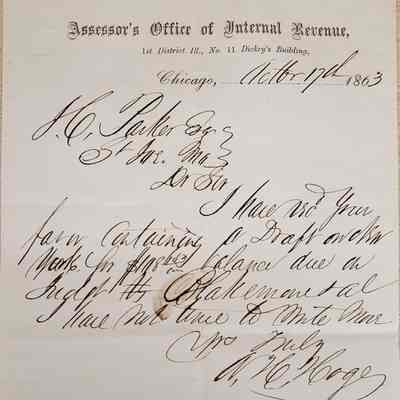 Assessor's Office of Internal Revenue,
1st District Ill., No. 11 Dickey's Building,
Chicago, Octbr 17th 1863
J. C. Parker Esq
St Joe. Mo
Dr Sir
I have recd your
favor containing a Draft on New
York for $198 balance due on
Judgt Blakemore et al
I have not time to write more
Yrs Truly
A. C. Hoge